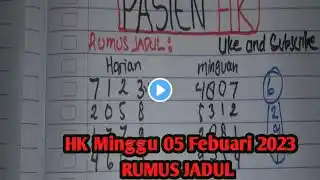 PASIEN HK
RUMUS JADUL: Like and Subscribe
Harian minguan
7123 4807 6
2058 5312 2
HK Minggu 05 Febuari 2023
RUMUS JADUL